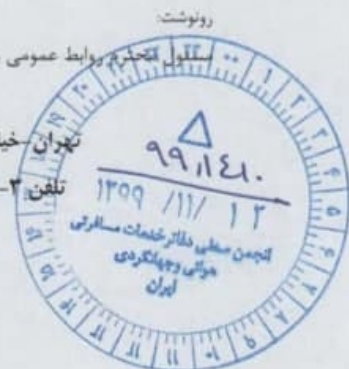 رونوشت:
مسئول محترم روابط عمومی
تهران-خیا
تلفن ۳-
۹۹,۱۴۱۰
۱۳۹۹ /۱۱/ ۱۲
انجمن صنفی دفاتر خدمات مسافرتی
هوائی وجهانگردی
ایران